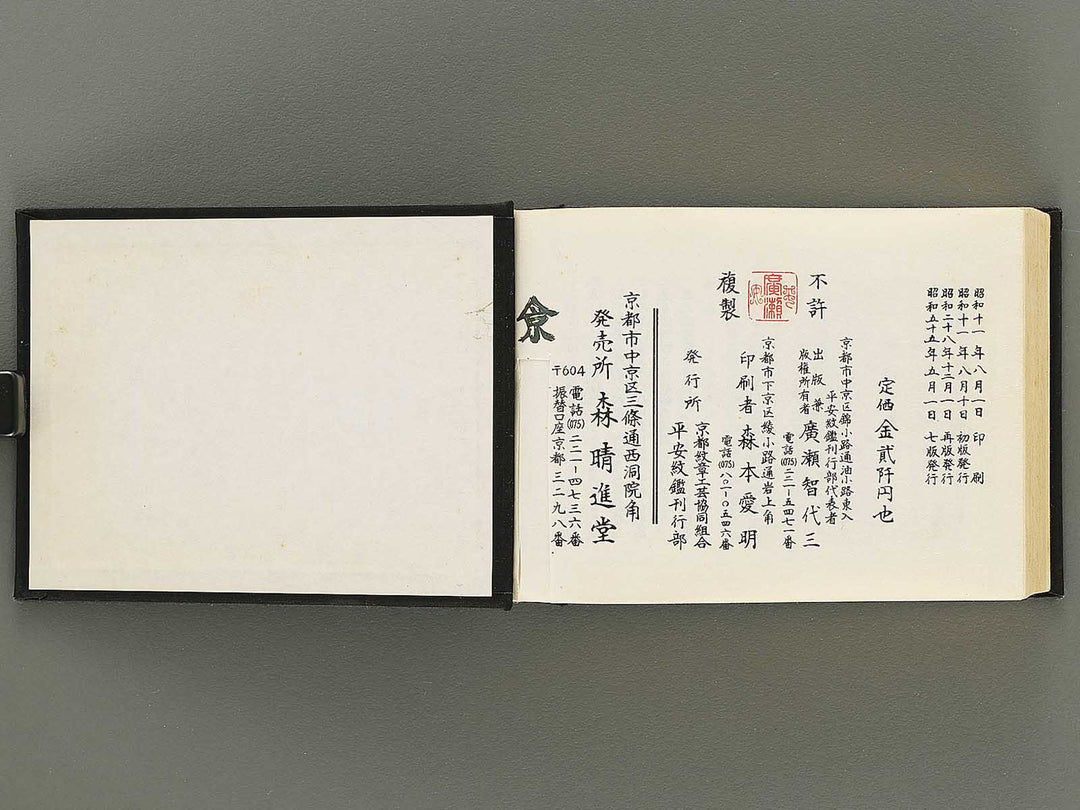 昭和十一年八月一日 印刷
昭和十一年八月十日 初版発行
昭和二十八年十二月一日 再版発行
昭和五十五年五月一日 七版発行
定価 金貳阡円也
京都市中京区錦小路通油小路東入
平安紋鑑刊行部代表者
出版兼
版権所有者
廣瀬智代三
電話(075)二二一-五四七一番
不許
複製
廣瀬
京都市下京区綾小路通岩上角
印刷者 森本愛明
電話(075)八〇一-〇五四六番
発行所
京都紋章工芸協同組合
平安紋鑑刊行部
京都市中京区三條通西洞院角
発売所 森晴進堂
〒604 電話(075)二二一-四七三六番
振替口座京都三二九八番